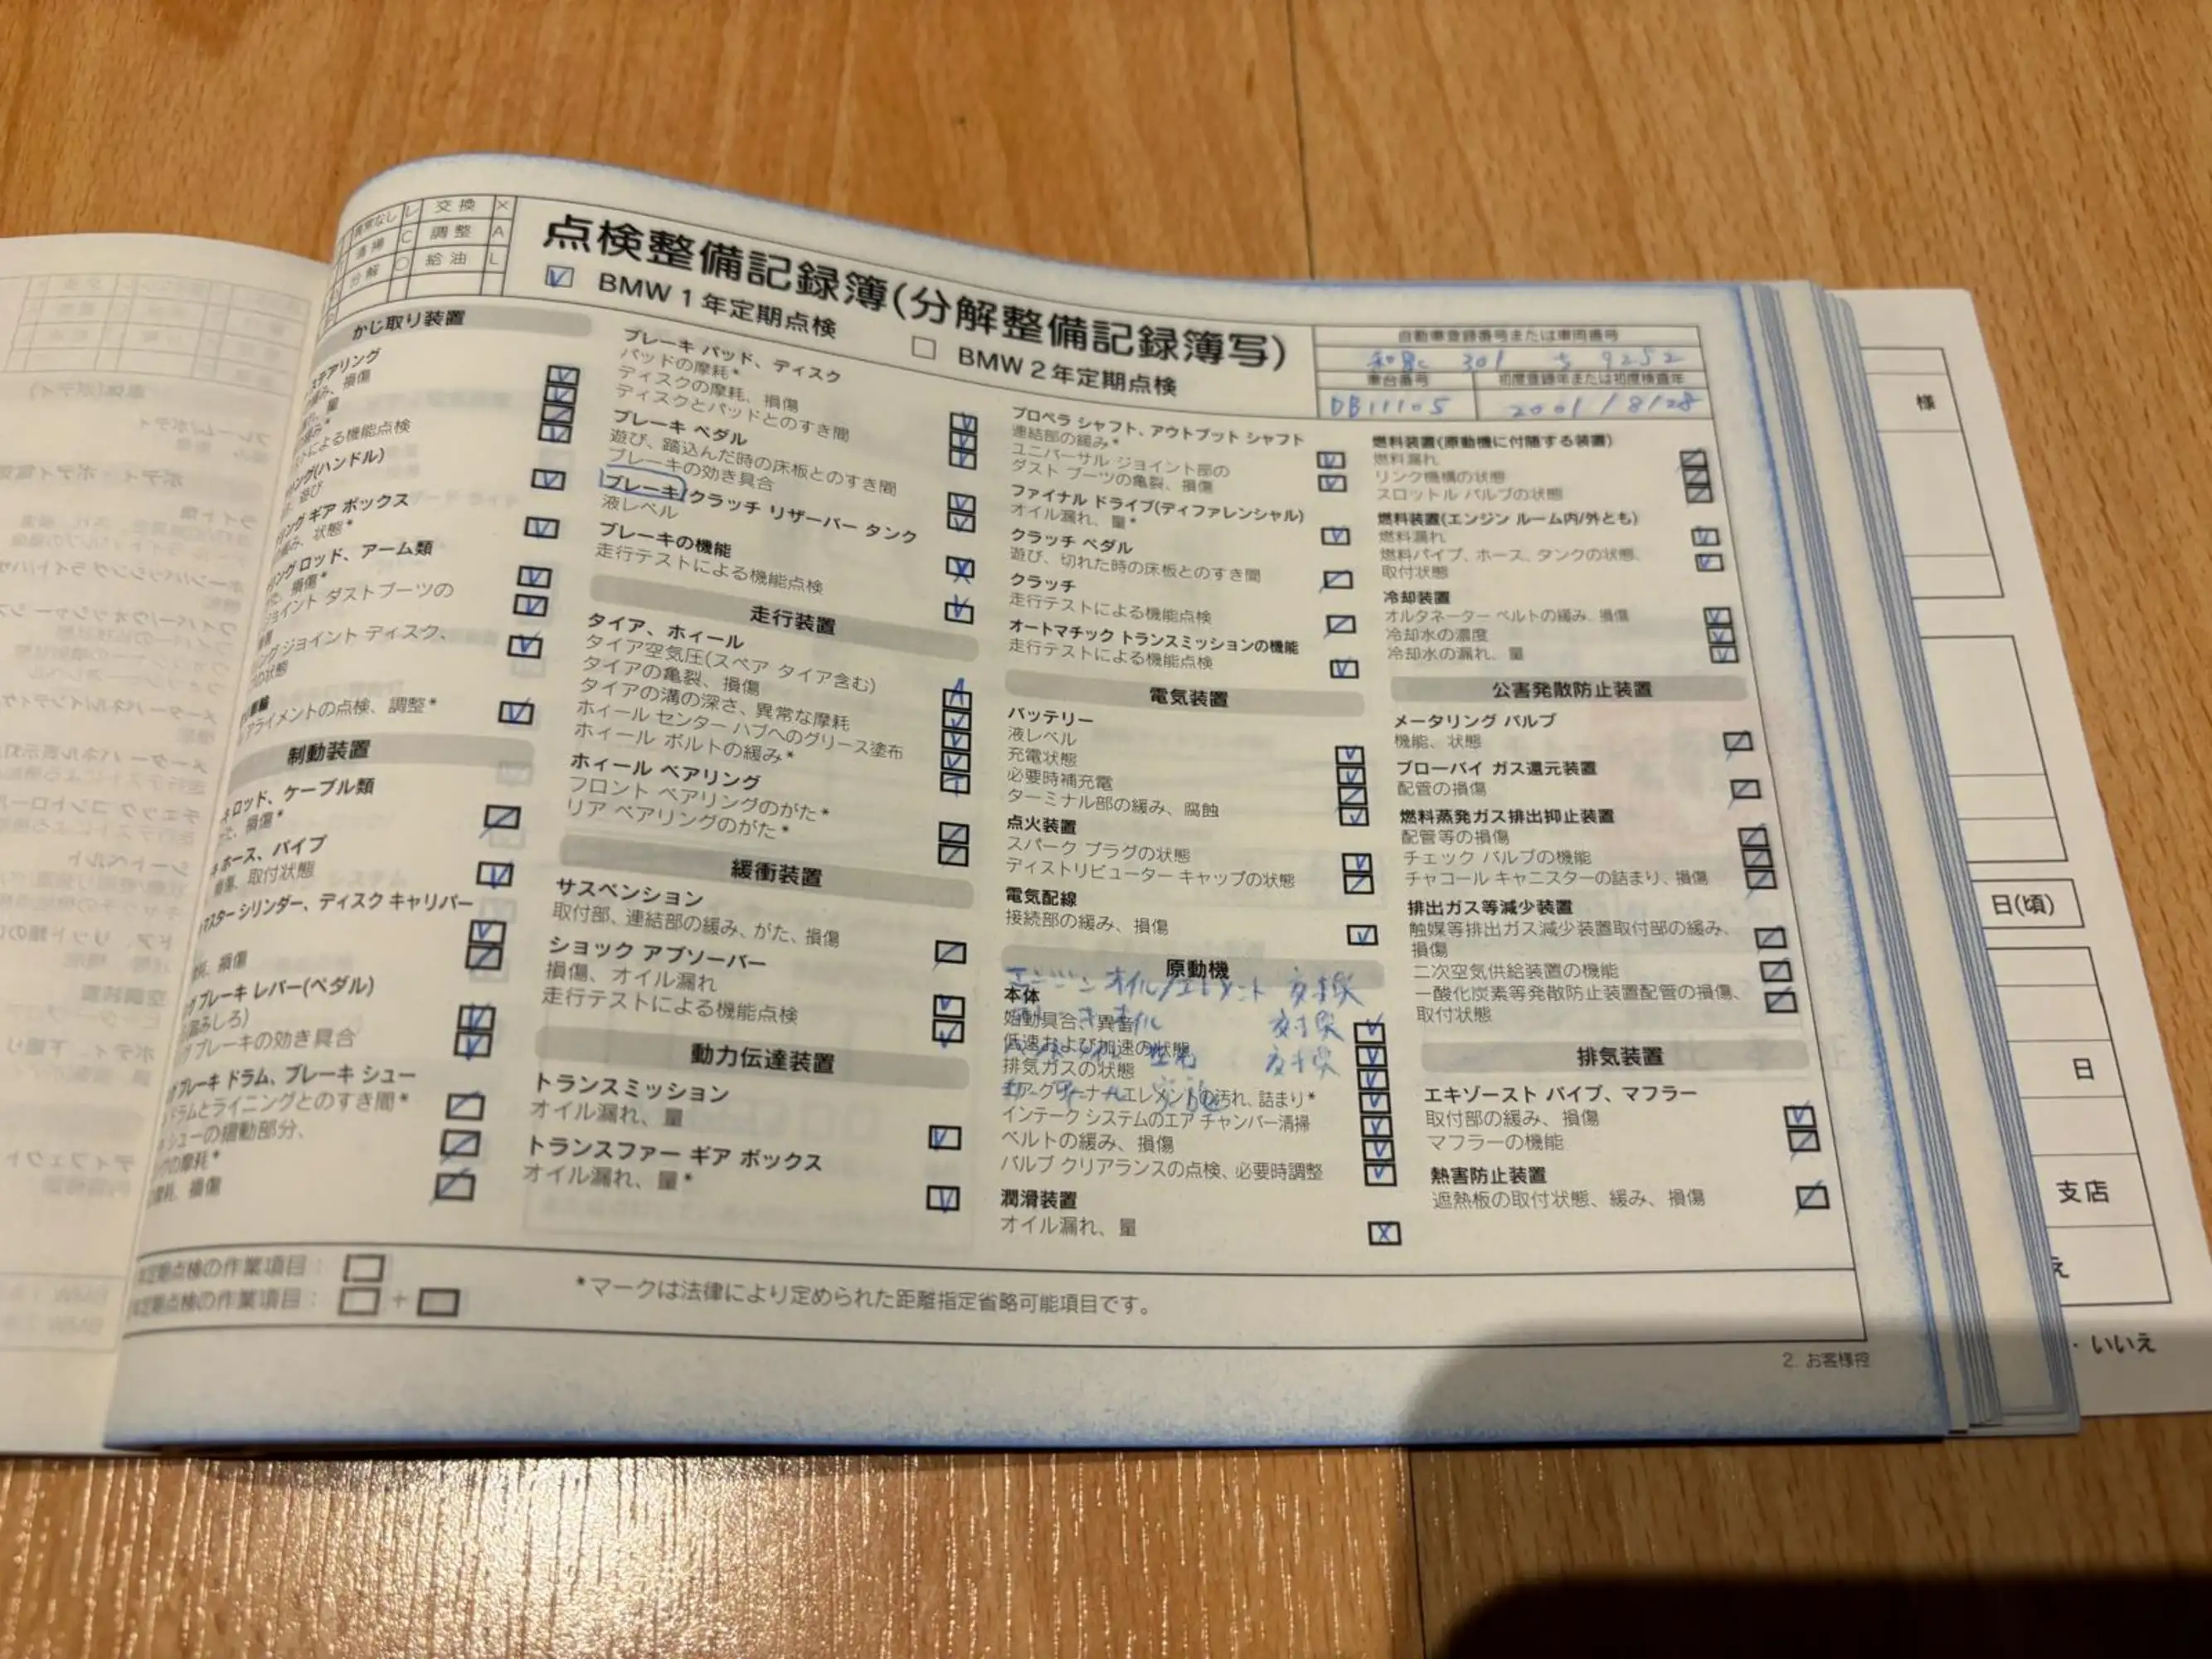 異常なし レ 交換 ×
清掃 C 調整 A
分解 ○ 給油 L
点検整備記録簿(分解整備記録簿写)
BMW 1年定期点検
BMW 2年定期点検
自動車登録番号または車両番号
301 9252
車台番号 初度登録年または初度検査年
DB11105 2001/8/28
かじ取り装置
損傷
量
による機能点検
(ハンドル)
遊び
ギア ボックス
状態*
ロッド、アーム類
損傷*
ジョイント ダストブーツの
ジョイント ディスク、
の状態
アライメントの点検、調整*
制動装置
ロッド、ケーブル類
損傷*
ホース、パイプ
損傷、取付状態
マスター シリンダー、ディスク キャリパー
損傷
ブレーキ レバー(ペダル)
ブレーキの効き具合
ブレーキ ドラム、ブレーキ シュー
ドラムとライニングとのすき間*
シューの摺動部分、
の摩耗*
損傷
ブレーキ パッド、ディスク
パッドの摩耗*
ディスクの摩耗、損傷
ディスクとパッドとのすき間
ブレーキ ペダル
遊び、踏込んだ時の床板とのすき間
ブレーキの効き具合
ブレーキ/クラッチ リザーバー タンク
液レベル
ブレーキの機能
走行テストによる機能点検
走行装置
タイア、ホイール
タイア空気圧(スペア タイア含む)
A
タイアの亀裂、損傷
タイアの溝の深さ、異常な摩耗
ホイール センター ハブへのグリース塗布
ホイール ボルトの緩み*
ホイール ベアリング
フロント ベアリングのがた*
リア ベアリングのがた*
緩衝装置
サスペンション
取付部、連結部の緩み、がた、損傷
ショック アブソーバー
損傷、オイル漏れ
走行テストによる機能点検
動力伝達装置
トランスミッション
オイル漏れ、量
トランスファー ギア ボックス
オイル漏れ、量*
プロペラ シャフト、アウトプット シャフト
連結部の緩み*
ユニバーサル ジョイント部の
ダスト ブーツの亀裂、損傷
ファイナル ドライブ(ディファレンシャル)
オイル漏れ、量*
クラッチ ペダル
遊び、切れた時の床板とのすき間
クラッチ
走行テストによる機能点検
オートマチック トランスミッションの機能
走行テストによる機能点検
電気装置
バッテリー
液レベル
充電状態
必要時補充電
ターミナル部の緩み、腐蝕
点火装置
スパーク プラグの状態
ディストリビューター キャップの状態
電気配線
接続部の緩み、損傷
原動機
エンジンオイル/エレメント 交換
本体
始動具合、異音
交換
低速および加速の状態
交換
排気ガスの状態
エア クリーナー エレメントの汚れ、詰まり*
インテーク システムのエア チャンバー清掃
ベルトの緩み、損傷
バルブ クリアランスの点検、必要時調整
潤滑装置
オイル漏れ、量
燃料装置(原動機に付随する装置)
燃料漏れ
リンク機構の状態
スロットル バルブの状態
燃料装置(エンジン ルーム内/外とも)
燃料漏れ
燃料パイプ、ホース、タンクの状態、
取付状態
冷却装置
オルタネーター ベルトの緩み、損傷
冷却水の濃度
冷却水の漏れ、量
公害発散防止装置
メータリング バルブ
機能、状態
ブローバイ ガス還元装置
配管の損傷
燃料蒸発ガス排出抑止装置
配管等の損傷
チェック バルブの機能
チャコール キャニスターの詰まり、損傷
排出ガス等減少装置
触媒等排出ガス減少装置取付部の緩み、
損傷
二次空気供給装置の機能
一酸化炭素等発散防止装置配管の損傷、
取付状態
排気装置
エキゾースト パイプ、マフラー
取付部の緩み、損傷
マフラーの機能
熱害防止装置
遮熱板の取付状態、緩み、損傷
定期点検の作業項目:
定期点検の作業項目: +
*マークは法律により定められた距離指定省略可能項目です。
2. お客様控
様
日(頃)
日
支店
え
・いいえ